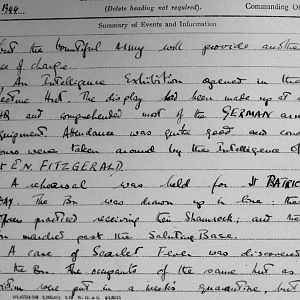 1944
(Delete heading not required).
Commanding Of
Summary of Events and Information
that the bountiful Army will provide anothe
ee of charge.
An Intelligence Exhibition opened in the
lecture Hut. The display had been made up at
HQ and comprehended most of the GERMAN arms
equipment. Attendance was quite good and
ours were taken around by the Intelligence Of
E.N. FITZGERALD.
A rehearsal was held for St PATRIC
DAY. The Bn was drawn up in line: the
practised receiving their Shamrock; and the
marched past the Saluting Base.
A case of Scarlet Fever was discovered
the Bn. The occupants of the same hut as
were put in a week's quarantine, but